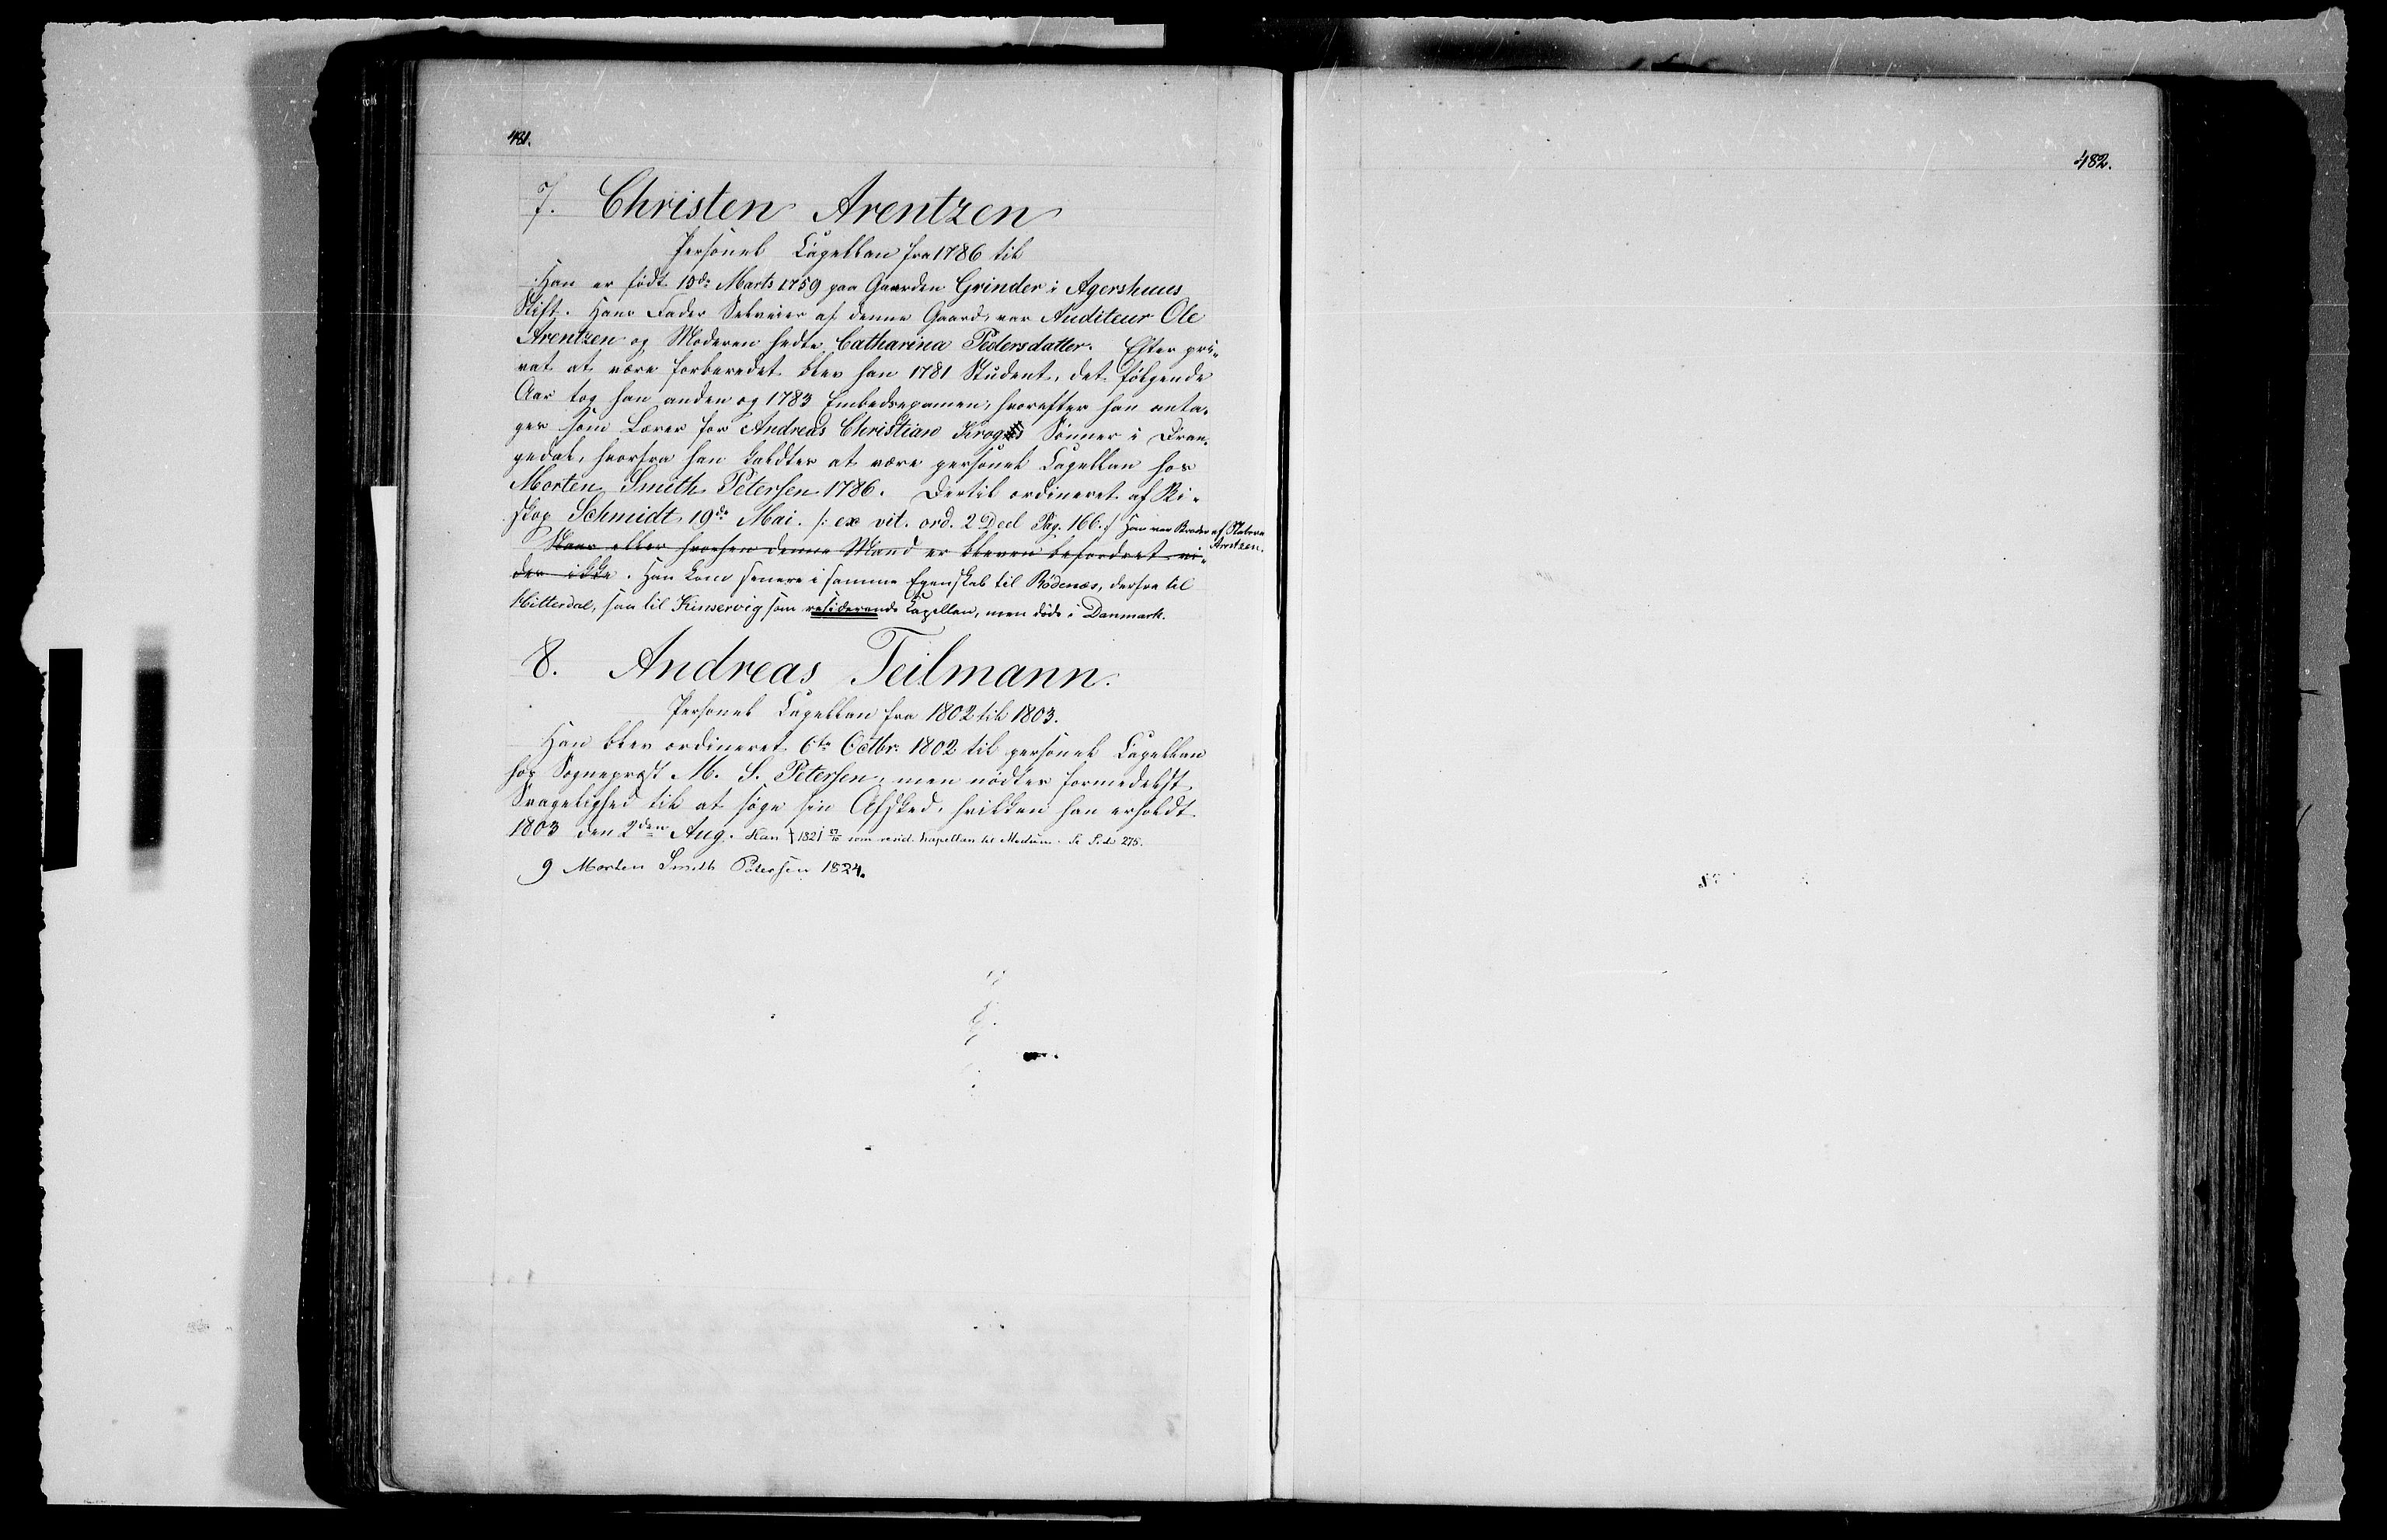 481.
7. Christen Arentzen
Personel Capellan fra 1786 til
Han er født 10de Marts 1759 paa Gaarden Grinder i Agershuus
Stift. Hans Fader Selveier af denne Gaard, var Auditeur Ole
Arentzen og Moderen hedte Catharina Pedersdatter. Efter pri-
vat at være forberedet blev han 1781 Student, det følgende
Aar tog han anden og 1783 Embedsexamen, hvorefter han anta-
ges som Lærer for Andreas Christian Krogs Sønner i Dran-
gedal, hvorfra han kaldtes at være personel Capellan hos
Morten Smith Petersen 1786. Dertil ordineret af Bi-
skop Schmidt 19de Mai. /: ex vit. ord. 2 Deel Pag. 166. :/ Han var Broder af
Arentzen.
Naar eller hvorhen denne Mand er bleven befordret vi-
des ikke. Han kom senere i samme Egenskab til Rødenæs, derfra til
Hitterdal, saa til Kinservig som residerende Capellan, men døde i Danmark.
8. Andreas Teilmann.
Personel Capellan fra 1802 til 1803.
Han blev ordineret 6te Octbr. 1802 til personel Capellan
hos Sognepræst M. S. Petersen, men nødtes formedelst
Svagelighed til at søge sin Afsked, hvilken han erholdt
1803 den 2den Aug. Han † 1821 som resid. Kapellan til Modum. Se Side 275.
9 Morten Smith Petersen 1824.
482.